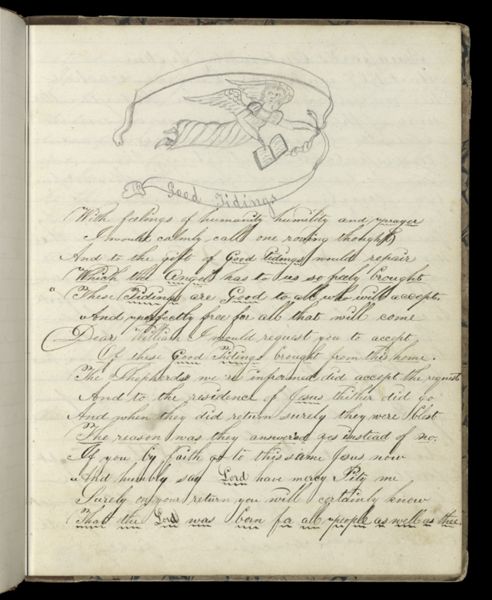 Good Tidings
With feelings of humanity humility and prayer
I would calmly call one roving thought
And to the gift of Good tidings would repair
Which the Angel has to us so freely brought
These Tidings are Good to all who will accept
And perfectly free for all that will come
Dear William I would request you to accept
Of these Good Tidings brought from this home.
The Shepherds we're informed did accept the request
And to the residence of Jesus thither did go
And when they did return surely they were blest
The reason was they answered yes instead of no.
If you by faith go to this same Jesus now
And humbly say Lord have mercy Pity me
Surely on your return you will certainly know
That the Lord was born for all people as well as thee.